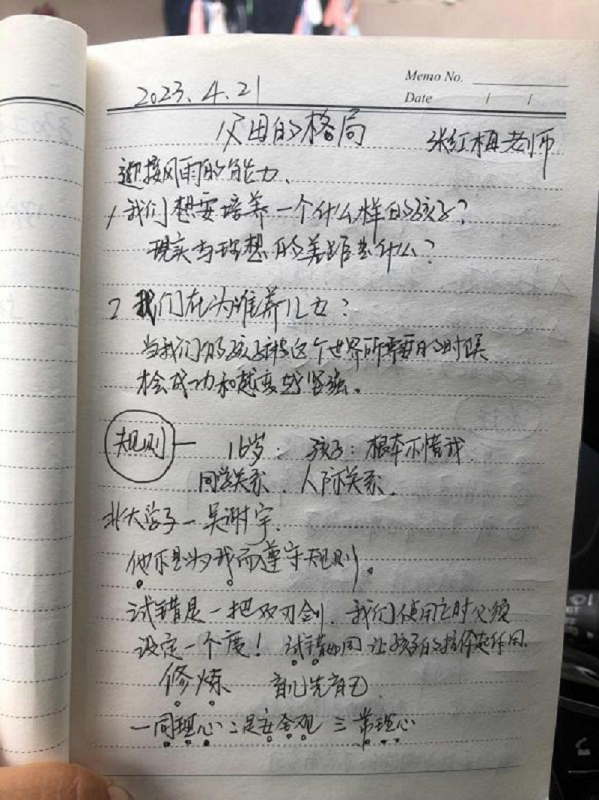 Memo No.
2023.4.21 Date / /
父母的格局 张红梅老师
迎接风雨的能力、
1 我们想要培养一个什么样的孩子?
现实与理想的差距是什么?
2 我们在为谁养儿女:
当我们的孩子被这个世界所需要的时候
才会成功和越变越坚强。
规则 — 16岁: 孩子:根本不懂我
同学关系、人际关系.
北大学子—吴谢宇.
他不是为我而遵守规则。
试错是一把双刃剑、我们使用它时必须
设定一个度! 试错如何让孩子的
修炼 育儿先育己.
一同理心 二是安全观 三常理心